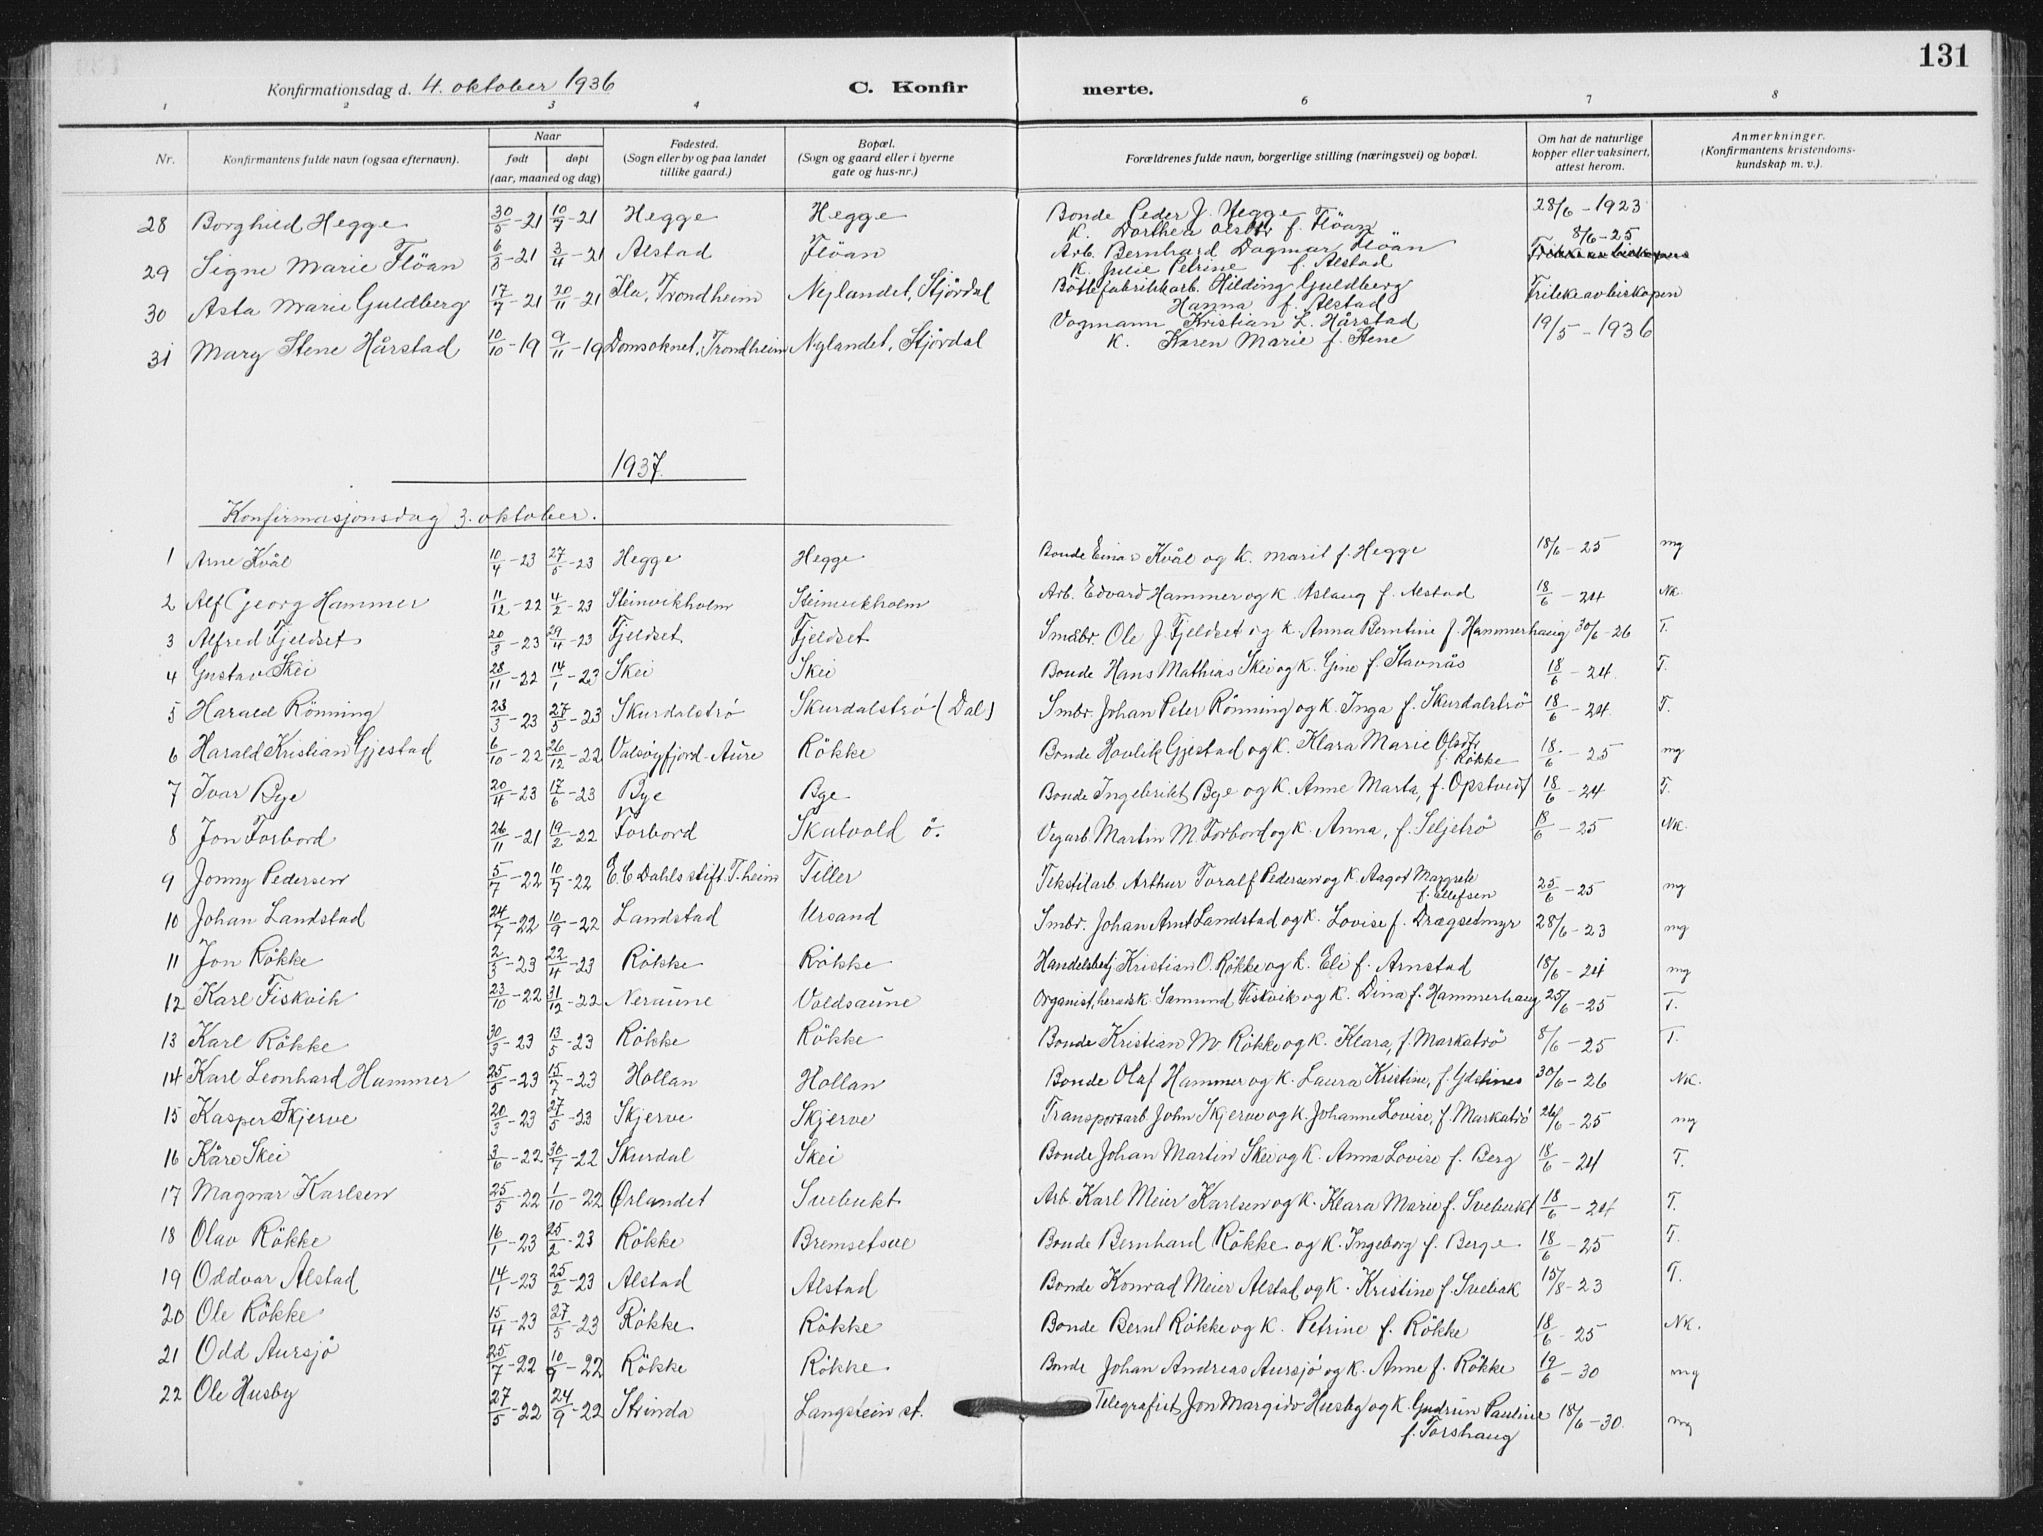 131
Konfirmationsdag d. 4. oktober 1936 C. Konfir merte.
1 2 3 4 6 7 8
Nr. Konfirmantens fulde navn (ogsaa efternavn). Naar født døpt (aar, maaned og dag) Fødested. (Sogn eller by og paa landet tillike gaard.) Bopæl. (Sogn og gaard eller i byerne gate og hus-nr.) Forældrenes fulde navn, borgerlige stilling (næringsvei) og bopæl. Om hat de naturlige kopper eller vaksinert, attest herom. Anmerkninger. (Konfirmantens kristendoms-kundskap m. v.).
28 Borghild Hegge 30/5-21 10/7-21 Hegge Hegge Bonde Peder J. Hegge 28/6-1923
K. Dorthea Olsdtr f. Flöan
29 Signe Marie Flöan 6/3-21 3/4-21 Alstad Flöan Arb. Bernhard Dagmar Flöan 8/6-25
K. Julie Petrine f. Alstad
30 Asta Marie Guldberg 17/7-21 20/11-21 Ila, Trondheim Nylandet, Stjördal Böttefabrikkarb. Hilding Guldberg Fritekeavbiskopen
Hanna f. Alstad
31 Mary Stene Hårstad 10/10-19 9/11-19 Domsoknet, Trondheim Nylandet, Stjördal Vogmann Kristian L. Hårstad 19/5-1936
K. Karen Marie f. Stene
1937.
Konfirmasjonsdag 3. oktober.
1 Arne Kvål 10/4-23 27/5-23 Hegge Hegge Bonde Einar Kvål og K. Marit f. Hegge 18/6-25 mg
2 Alf Georg Hammer 11/12-22 4/2-23 Steinvikholm Steinvikholm Arb. Edvard Hammer og K. Aslaug f. Alstad 18/6-24 NK.
3 Alfred Fjeldset 20/3-23 29/4-23 Fjeldset Fjeldset Småbr. Ole J. Fjeldset og K. Anna Berntine f. Hammerhaug 30/6-26 T.
4 Gustav Skei 28/11-22 14/1-23 Skei Skei Bonde Hans Mathias Skei og K. Gine f. Stavnås 18/6-24. T.
5 Harald Rönning 23/3-23 27/5-23 Skurdalströ Skurdalströ (Dal) Smbr. Johan Peter Rönning og K. Inga f. Skurdalströ 18/6-24. T.
6 Harald Kristian Gjestad 6/10-22 26/12-22 Valsöyfjord-Aure Rökke Bonde Hovlik Gjestad og K. Klara Marie Olsdtr 18/6-25 mg
f. Rökke
7 Ivar Bye 20/4-23 17/6-23 Bye Bye Bonde Ingebrikt Bye og K. Anne Marta, f. Opstvedt 18/6-24 T.
8 Jon Forbord 26/11-21 19/2-22 Forbord Skatvold ö. Vegarb. Martin M. Forbord og K. Anna, f. Seljetrö 18/6-25 NK.
9 Jonny Pedersen 5/7-22 10/9-22 E.C. Dahls stift. T.heim Tiller Tekstilarb. Arthur Toralf Pedersen og K. Aagot Margrete 25/6-25 mg
f. Ellefsen
10 Johan Landstad 24/7-22 10/9-22 Landstad Ursand Smbr. Johan Arnt Landstad og K. Lovise f. Drægsetmyr 28/6-23 mg
11 Jon Rökke 2/3-23 22/4-23 Rökke Rökke Handelsbetj. Kristian O. Rökke og K. Eli f. Arnstad 18/6-24 mg
12 Karl Fiskvik 23/10-22 31/12-22 Neraune Voldsaune Organist, heradsk. Samund Fiskvik og K. Dina f. Hammerhaug 25/6-25 T.
13 Karl Rökke 30/3-23 13/5-23 Rökke Rökke Bonde Kristian M. Rökke og K. Klara, f. Markatrö 8/6-25 T.
14 Karl Leonhard Hammer 25/5-23 15/7-23 Hollan Hollan Bonde Olaf Hammer og K. Laura Kristine, f. Ydstines 30/6-26 NK.
15 Kasper Skjerve 20/3-23 27/5-23 Skjerve Skjerve Transportarb. John Skjerve og K. Johanne Lovise, f. Markatrö 26/6-25 mg
16 Kåre Skei 3/6-22 30/7-22 Skurdal Skei Bonde Johan Martin Skei og K. Anna Lovise f. Berg 18/6-24 T.
17 Magnar Karlsen 25/5-22 1/10-22 Ørlandet Svebukt Arb. Karl Meier Karlsen og K. Klara Marie f. Svebukt 18/6-24 T.
18 Olav Rökke 16/1-23 25/2-23 Rökke Bremsetsve Bonde Bernhard Rökke og K. Ingeborg f. Berge 18/6-25 T.
19 Oddvar Alstad 14/1-23 25/2-23 Alstad Alstad Bonde Konrad Meier Alstad og K. Kristine f. Svebak 15/8-23 T.
20 Ole Rökke 15/4-23 27/5-23 Rökke Rökke Bonde Bernt Rökke og K. Petrine f. Rökke 18/6-25 NK.
21 Odd Aursjö 25/7-22 10/9-22 Rökke Rökke Bonde Johan Andreas Aursjö og K. Anne f. Rökke 19/6-30 mg
22 Ole Husby 27/5-22 24/9-22 Strinda Langstein st. Telegrafist Jon Margido Husby og K. Gudrun Pauline 18/6-30. mg
f. Torshaug